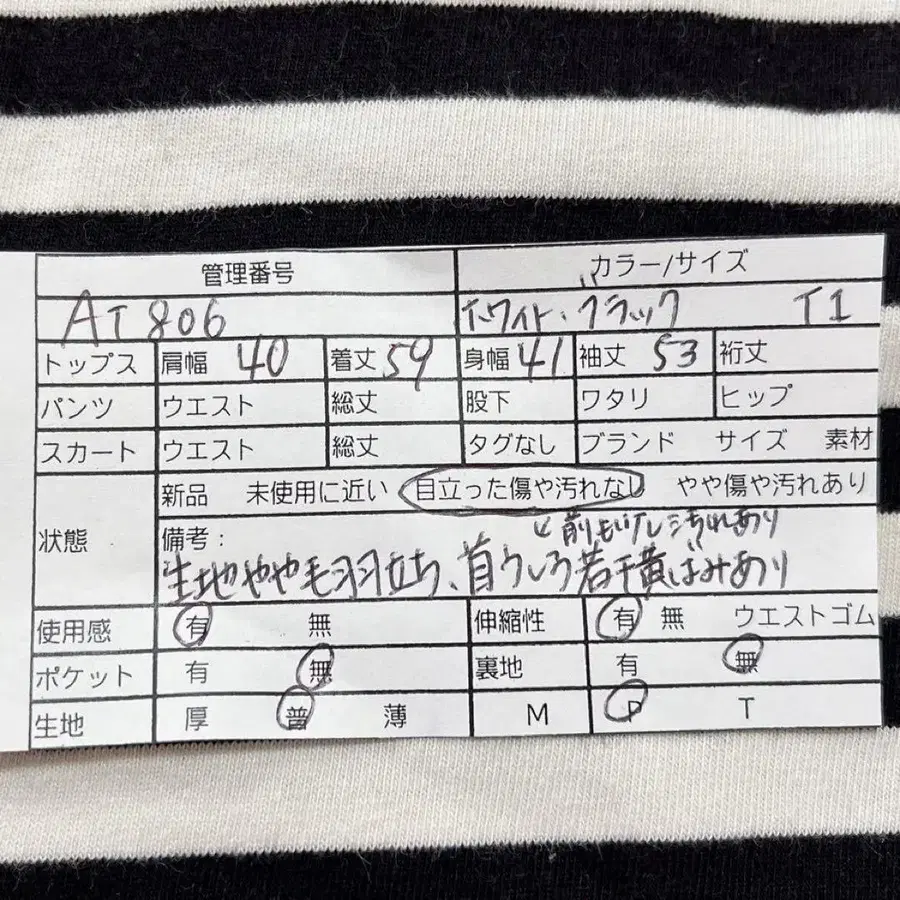 管理番号 カラー/サイズ
AT806 ホワイト・ブラック T1
トップス 肩幅 40 着丈 59 身幅 41 袖丈 53 裄丈
パンツ ウエスト 総丈 股下 ワタリ ヒップ
スカート ウエスト 総丈 タグなし ブランド サイズ 素材
状態 新品 未使用に近い 目立った傷や汚れなし やや傷や汚れあり
備考: 汚れあり
生地やや毛羽立ち、首うしろ若干黄ばみあり
使用感 有 無 伸縮性 有 無 ウエストゴム
ポケット 有 無 裏地 有 無
生地 厚 普 薄 M P T